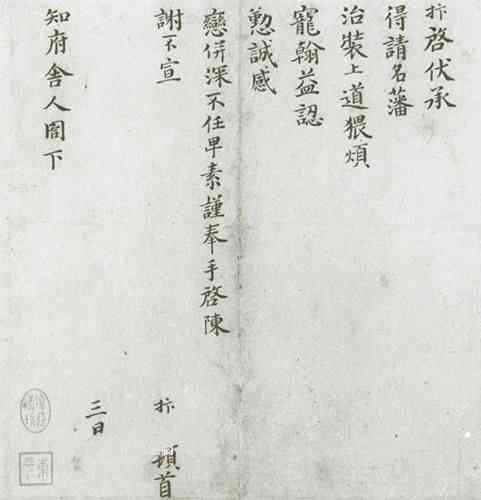 抃啓伏承
得請名藩
治裝上道猥煩
寵翰益認
懃誠感
戀併深不任早素謹奉手啓陳
謝不宣 抃 頓首
三日
知府舍人閤下